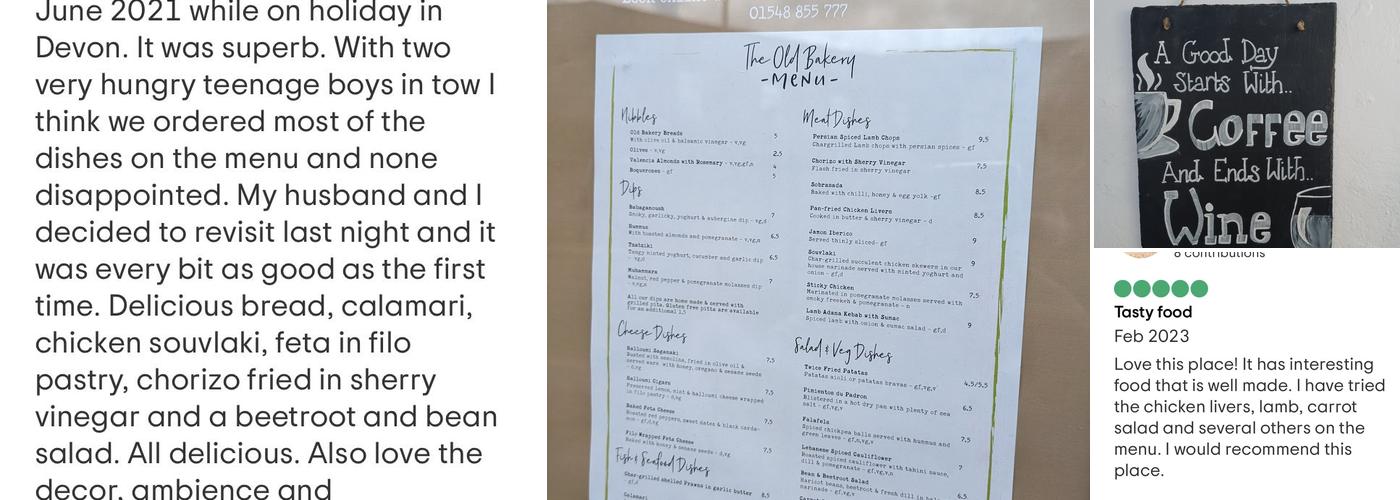 June 2021 while on holiday in
Devon. It was superb. With two
very hungry teenage boys in tow I
think we ordered most of the
dishes on the menu and none
disappointed. My husband and I
decided to revisit last night and it
was every bit as good as the first
time. Delicious bread, calamari,
chicken souvlaki, feta in filo
pastry, chorizo fried in sherry
vinegar and a beetroot and bean
salad. All delicious. Also love the
decor, ambience and
01548 855 777
The Old Bakery
-MENU-
Nibbles
Old Bakery Breads 5
With olive oil & balsamic vinegar - v,vg
Olives - v,vg 2.5
Valencia Almonds with Rosemary - v,vg,gf,n 4
Boquerones - gf 5
Dips
Babaganoush 7
Smoky, garlicky, yoghurt & aubergine dip - vg,d
Hummus 6.5
With toasted almonds and pomegranate - v,vg,n
Tzatziki 6.5
Tangy minted yoghurt, cucumber and garlic dip
- vg,d
Muhammara 7
Walnut, red pepper & pomegranate molasses dip
- v,vg,n
All our dips are home made & served with
grilled pita. Gluten free pittas are available
for an additional 1.5
Cheese Dishes
Halloumi Saganaki 7.5
Dusted with semolina, fried in olive oil &
served warm with honey, oregano & sesame seeds
- d,vg
Halloumi Cigars 7.5
Preserved lemon, mint & halloumi cheese wrapped
in filo pastry - d,vg
Baked Feta Cheese 7.5
Roasted red peppers, sweet dates & black carda-
mom - gf,d,vg
Filo Wrapped Feta Cheese 7.5
Baked with honey & sesame seeds - d,vg
Fish & Seafood Dishes
Char-grilled shelled Prawns in garlic butter 8.5
Calamari
Meat Dishes
Persian Spiced Lamb Chops 9.5
Chargrilled Lamb chops with persian spices - gf
Chorizo with Sherry Vinegar 7.5
Flash fried in sherry vinegar
Sobrasada 8.5
Baked with chilli, honey & egg yolk -gf
Pan-fried Chicken Livers 8.5
Cooked in butter & sherry vinegar - d
Jamon Iberico 9
Served thinly sliced- gf
Souvlaki 9
Char-grilled succulent chicken skewers in our
house marinade served with minted yoghurt and
onion - gf,d
Sticky Chicken 7.5
Marinated in pomegranate molasses served with
smoky freekeh & pomegranate - n
Lamb Adana Kebab with Sumac 9
Spiced lamb with onion & sumac salad - gf,d
Salad & Veg Dishes
Twice Fried Patatas 4.5/5.5
Patatas aioli or patatas bravas - gf,vg,v
Pimientos du Padron 6.5
Blistered in a hot dry pan with plenty of sea
salt - gf,vg,v
Falafels 7.5
Spiced chickpea balls served with hummus and
green leaves - gf,n,vg,v
Lebanese Spiced Cauliflower 7
Roasted spiced cauliflower with tahini sauce,
dill & pomegranate - gf,vg,v,n
Bean & Beetroot Salad 6.5
Haricot beans, beetroot & fresh dill in
marinade - gf,vg,v
A Good Day
Starts With..
Coffee
And Ends With..
Wine
8 contributions
Tasty food
Feb 2023
Love this place! It has interesting
food that is well made. I have tried
the chicken livers, lamb, carrot
salad and several others on the
menu. I would recommend this
place.